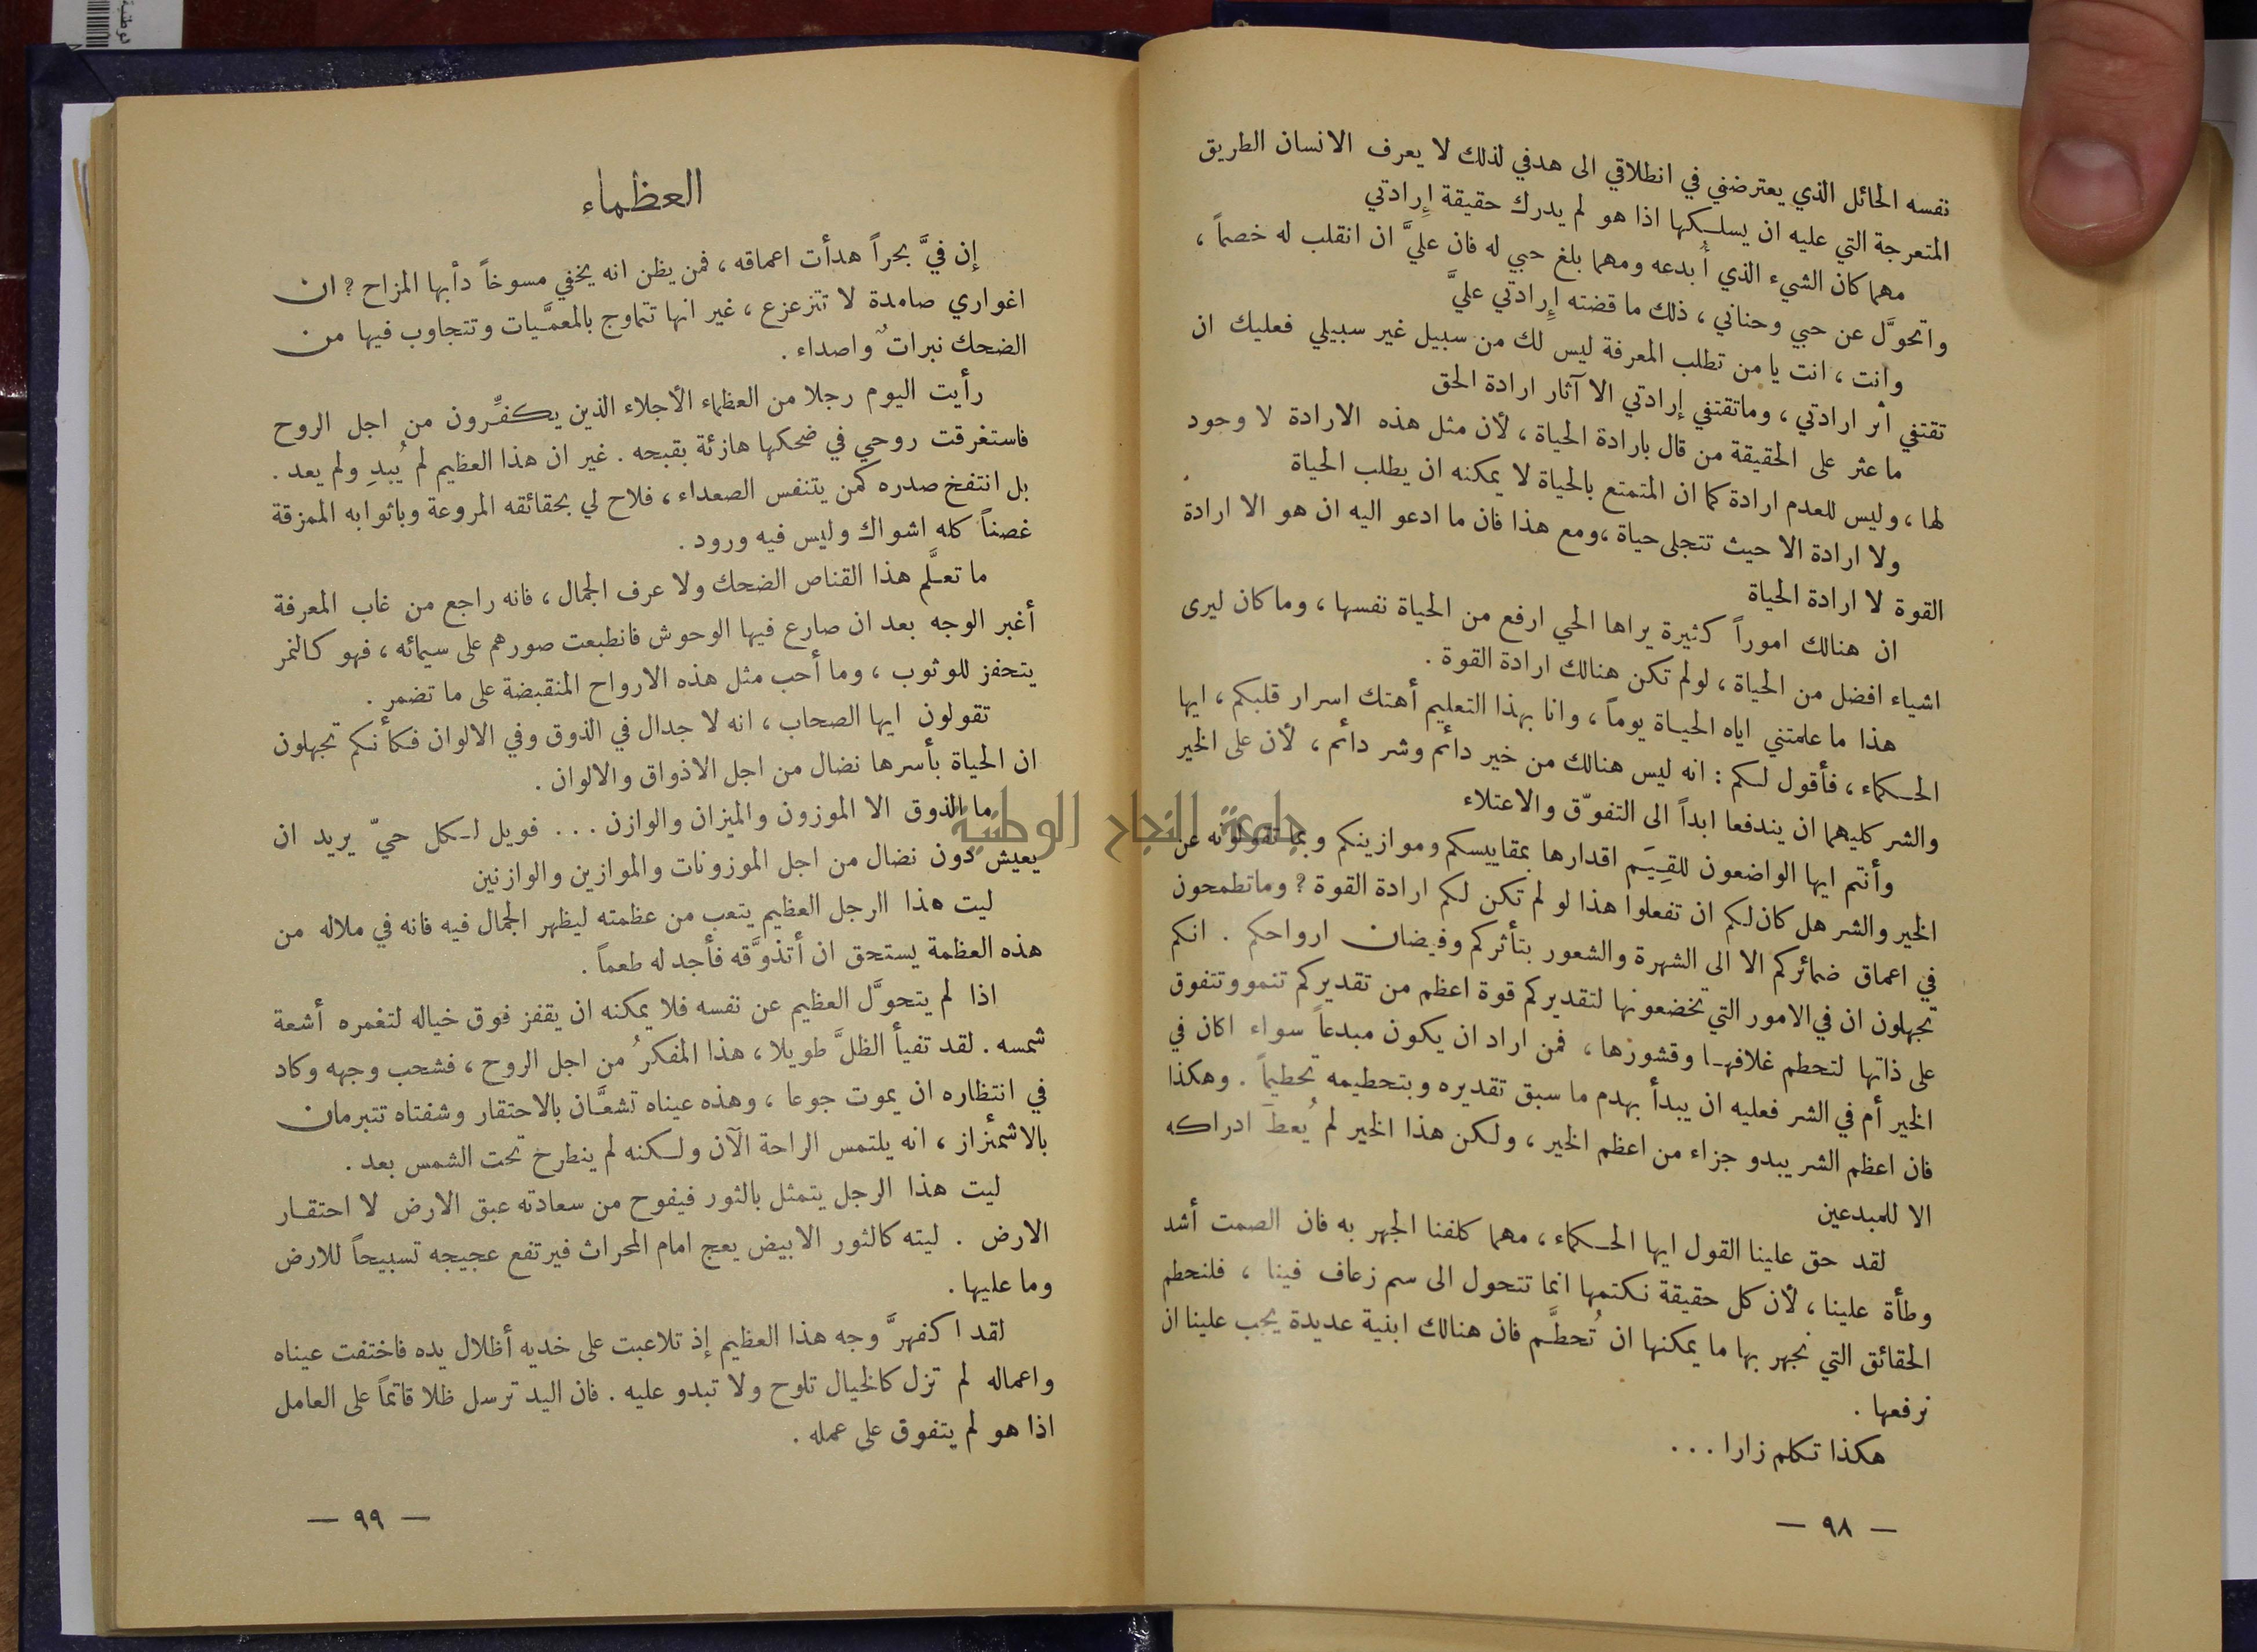 نفسه الحائل الذي يعترضني في انطلاقي الى هدفي لذلك لا يعرف الانسان الطريق
المتعرجة التي عليه ان يسلكها اذا هو لم يدرك حقيقة إرادتي
مهما كان الشيء الذي أُبدعه ومهما بلغ حبي له فان عليَّ ان انقلب له خصماً ،
واتحوَّل عن حبي وحناني ، ذلك ما قضته إرادتي عليَّ
وانت ، انت يا من تطلب المعرفة ليس لك من سبيل غير سبيلي فعليك ان
تقتفي أثر ارادتي ، وما تقتفي إرادتي الا آثار ارادة الحق
ما عثر على الحقيقة من قال بارادة الحياة ، لأن مثل هذه الارادة لا وجود
لها ، وليس للعدم ارادة كما ان المتمتع بالحياة لا يمكنه ان يطلب الحياة
ولا ارادة الا حيث تتجلى حياة ، ومع هذا فان ما ادعو اليه ان هو الا ارادة
القوة لا ارادة الحياة
ان هنالك اموراً كثيرة يراها الحي ارفع من الحياة نفسها ، وما كان ليرى
اشياء افضل من الحياة ، لو لم تكن هنالك ارادة القوة .
هذا ما علمتني اياه الحياة يوماً ، وانا بهذا التعليم أهتك اسرار قلبكم ، ايها
الحكماء ، فأقول لكم : انه ليس هنالك من خير دائم وشر دائم ، لأن على الخير
والشر كليهما ان يندفعا ابداً الى التفوّق والاعتلاء
وأنتم ايها الواضعون للقِيَم اقدارها بمقاييسكم وموازينكم وبما تقولونه عن
الخير والشر هل كان لكم ان تفعلوا هذا لو لم تكن لكم ارادة القوة ? وما تطمحون
في اعماق ضمائركم الا الى الشهرة والشعور بتأثركم وفيضان ارواحكم . انكم
تجهلون ان في الامور التي تخضعونها لتقديركم قوة اعظم من تقديركم تنمو وتتفوق
على ذاتها لتحطم غلافها وقشورها ، فمن اراد ان يكون مبدعاً سواء اكان في
الخير أم في الشر فعليه ان يبدأ بهدم ما سبق تقديره وبتحطيمه تحطيماً . وهكذا
فان اعظم الشر يبدو جزاء من اعظم الخير ، ولكن هذا الخير لم يُعطَ ادراكه
الا للمبدعين
لقد حق علينا القول ايها الحكماء ، مهما كلفنا الجهر به فان الصمت أشد
وطأة علينا ، لأن كل حقيقة نكتمها انما تتحول الى سم زعاف فينا ، فلنحطم
الحقائق التي نجهر بها ما يمكنها ان تُحطَّم فان هنالك ابنية عديدة يجب علينا ان
نرفعها .
هكذا تكلم زارا . . .
— ٩٨ —
العظماء
إن فيَّ بحراً هدأت اعماقه ، فمن يظن انه يخفي مسوخاً دأبها المزاح ? ان
اغواري صامدة لا تتزعزع ، غير انها تتماوج بالمعمَّيات وتتجاوب فيها من
الضحك نبراتٌ واصداء .
رأيت اليوم رجلا من العظماء الأجلاء الذين يكفِّرون من اجل الروح
فاستغرقت روحي في ضحكها هازئة بقبحه . غير ان هذا العظيم لم يُبدِ ولم يعد .
بل انتفخ صدره كمن يتنفس الصعداء ، فلاح لي بحقائقه المروعة وباثوابه الممزقة
غصناً كله اشواك وليس فيه ورود .
ما تعلَّم هذا القناص الضحك ولا عرف الجمال ، فانه راجع من غاب المعرفة
أغبر الوجه بعد ان صارع فيها الوحوش فانطبعت صورهم على سيمائه ، فهو كالنمر
يتحفز للوثوب ، وما أحب مثل هذه الارواح المنقبضة على ما تضمر .
تقولون ايها الصحاب ، انه لا جدال في الذوق وفي الالوان فكأنكم تجهلون
ان الحياة بأسرها نضال من اجل الاذواق والالوان .
ما الذوق الا الموزون والميزان والوازن . . . فويل لكل حيّ يريد ان
يعيش دون نضال من اجل الموزونات والموازين والوازنين
ليت هذا الرجل العظيم يتعب من عظمته ليظهر الجمال فيه فانه في ملاله من
هذه العظمة يستحق ان أتذوَّقه فأجد له طعماً .
اذا لم يتحوَّل العظيم عن نفسه فلا يمكنه ان يقفز فوق خياله لتغمره أشعة
شمسه . لقد تفيأ الظلَّ طويلا ، هذا المفكرُ من اجل الروح ، فشحب وجهه وكاد
في انتظاره ان يموت جوعا ، وهذه عيناه تشعَّان بالاحتقار وشفتاه تتبرمان
بالاشمئزاز ، انه يلتمس الراحة الآن ولكنه لم ينطرح تحت الشمس بعد .
ليت هذا الرجل يتمثل بالثور فيفوح من سعادته عبق الارض لا احتقار
الارض . ليته كالثور الابيض يعج امام المحراث فيرتفع عجيجه تسبيحاً للارض
وما عليها .
لقد اكفهرَّ وجه هذا العظيم إذ تلاعبت على خديه أظلال يده فاختفت عيناه
واعماله لم تزل كالخيال تلوح ولا تبدو عليه . فان اليد ترسل ظلا قاتماً على العامل
اذا هو لم يتفوق على عمله .
— ٩٩ —
جامعة النجاح الوطنية